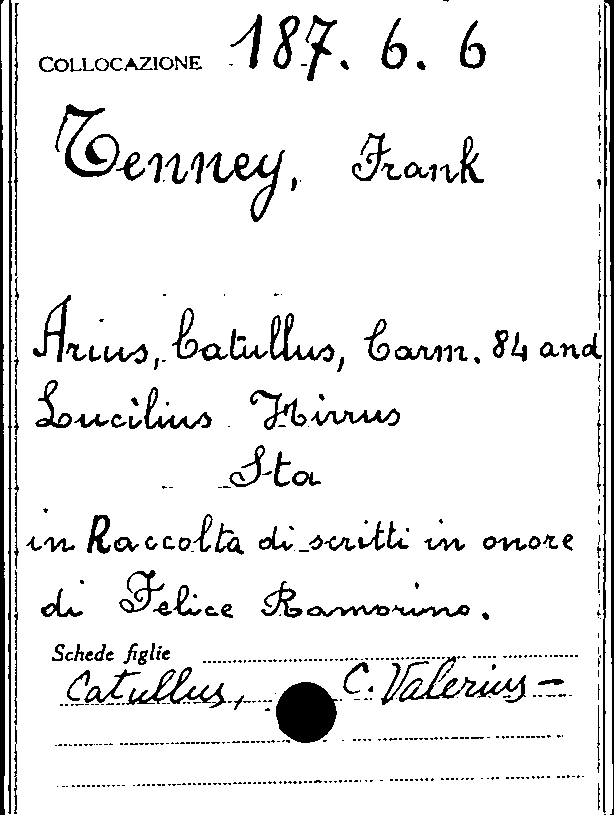 COLLOCAZIONE 187. 6. 6
Tenney, Frank
Arius, Catullus, Carm. 84 and
Lucilius Hirrus
Sta
in Raccolta di scritti in onore
di Felice Ramorino.
Schede figlie
Catullus, C. Valerius -